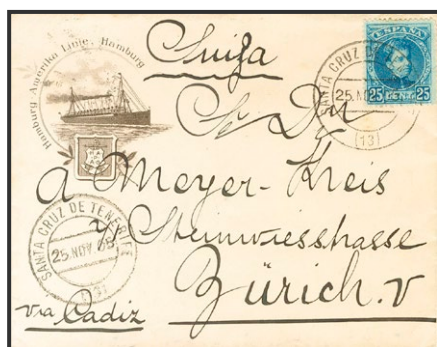 Hamburg-Amerika Linie, Hamburg
Suiza
ESPAÑA
25 CENT. 25
SANTA CRUZ DE
25. NOV
(13)
Sr. Dn
A Meyer-Kreis
Steinwiesstrasse
SANTA CRUZ DE TENERIFE
25. NOV. 05
Zürich. V
via Cadiz